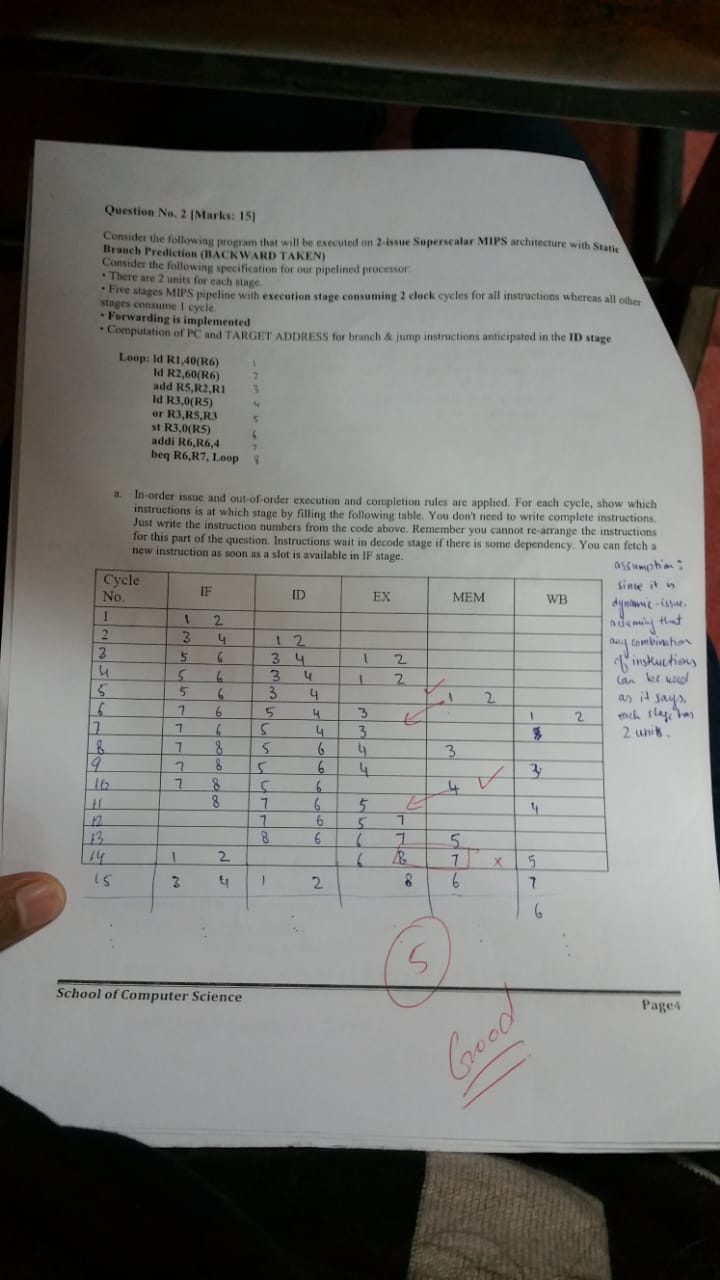 Question No. 2 [Marks: 15]
Consider the following program that will be executed on 2-issue Superscalar MIPS architecture with Static
Branch Prediction (BACKWARD TAKEN)
Consider the following specification for our pipelined processor:
• There are 2 units for each stage.
• Five stages MIPS pipeline with execution stage consuming 2 clock cycles for all instructions whereas all other
stages consume 1 cycle.
• Forwarding is implemented
• Computation of PC and TARGET ADDRESS for branch & jump instructions anticipated in the ID stage
Loop: ld R1,40(R6) 1
ld R2,60(R6) 2
add R5,R2,R1 3
ld R3,0(R5) 4
or R3,R5,R3 5
st R3,0(R5) 6
addi R6,R6,4 7
beq R6,R7, Loop 8
a. In-order issue and out-of-order execution and completion rules are applied. For each cycle, show which
instructions is at which stage by filling the following table. You don't need to write complete instructions.
Just write the instruction numbers from the code above. Remember you cannot re-arrange the instructions
for this part of the question. Instructions wait in decode stage if there is some dependency. You can fetch a
new instruction as soon as a slot is available in IF stage.
assumption:
since it is
dynamic-issue,
assuming that
any combination
of instructions
can be used
as it says,
each stage has
2 units.
Cycle No. IF ID EX MEM WB
1 1 2
2 3 4 1 2
3 5 6 3 4 1 2
4 5 6 3 4 1 2
5 5 6 3 4 1 2
6 7 6 5 4 3 1 2
7 7 6 5 4 3
8 7 8 5 6 4 3
9 7 8 5 6 4 3
10 7 8 5 6 4
11 8 7 6 5 4
12 7 6 5 7
13 8 6 6 7 5
14 1 2 6 8 7 x 5
15 3 4 1 2 8 6 7
6
5
Good
School of Computer Science
Page4